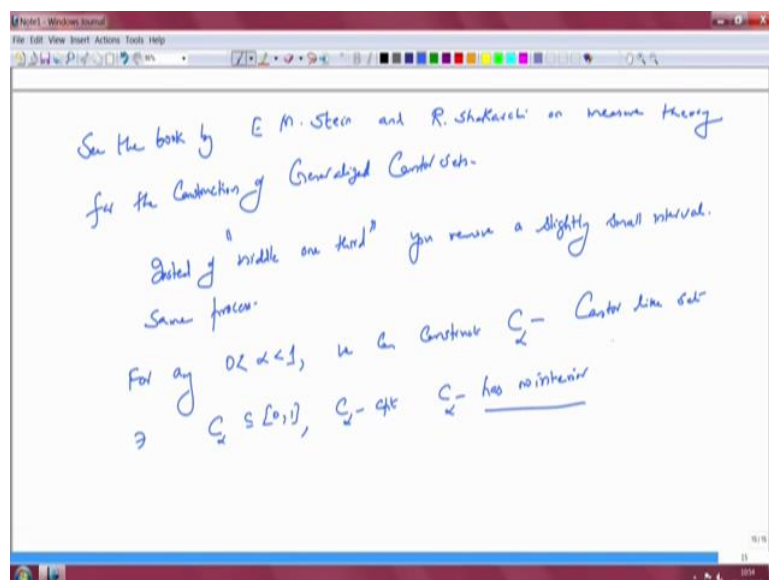 Note1 - Windows Journal
File Edit View Insert Actions Tools Help
See the book by E M. Stein and R. Shakarchi on measure theory
for the Construction of Generalized Cantor Sets.
Insted of "middle one third" you remove a slightly small interval.
Same process.
For any 0< α <1, we can construct C_α - Cantor like set
∋ C_α ⊆ [0,1], C_α - cpt C_α - has no interior
15
1054